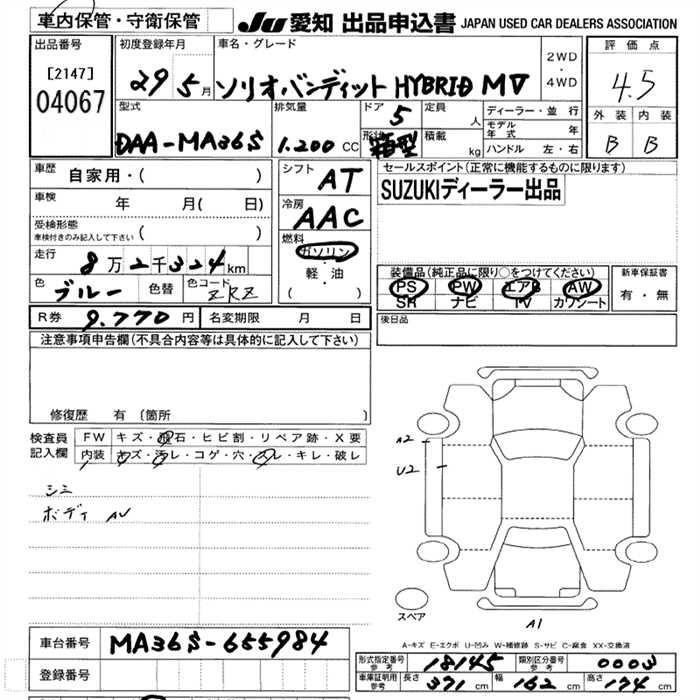 車内保管・守衛保管
JU 愛知 出品申込書 JAPAN USED CAR DEALERS ASSOCIATION
出品番号
[2147]
04067
初度登録年月
29 5月
車名・グレード
ソリオバンディット HYBRID MV
2WD
・
4WD
評価点
4.5
外装 内装
B B
型式
DAA-MA36S
排気量
1.200 CC
ドア 5
形状 箱型
定員 人
積載 kg
ディーラー・並行
モデル年式 年
ハンドル 左・右
車歴 自家用・( )
車検 年 月( 日)
受検形態
車検付きのみ記入して下さい ( )
走行 8万2千324km
色 ブルー 色替 色コード ZRZ
シフト AT
冷房 AAC
燃料
ガソリン
・
軽・油
( )
セールスポイント(正常に機能するものに限ります)
SUZUKIディーラー出品
装備品(純正品に限り○をつけてください)
PS PW エアB AW
SR ナビ TV カワシート
新車保証書
有・無
後日品
R券 9.770円 名変期限 月 日
注意事項申告欄(不具合内容等は具体的に記入して下さい)
修復歴 有 〔箇所 〕
検査員記入欄
FW キズ・飛石・ヒビ割・リペア跡・X要
内装 キズ・汚レ・コゲ・穴・スレ・キレ・破レ
シミ
ボディ AU
A2
U2
A1
スペア
A-キズ E-エクボ U-凹み W-補修跡 S-サビ C-腐食 XX-交換済
車台番号 MA36S-655984
登録番号
形式指定番号 参考 18145 類別区分番号 参考 0003
車庫証明用 参考 長さ 371cm 幅 162cm 高さ 174cm